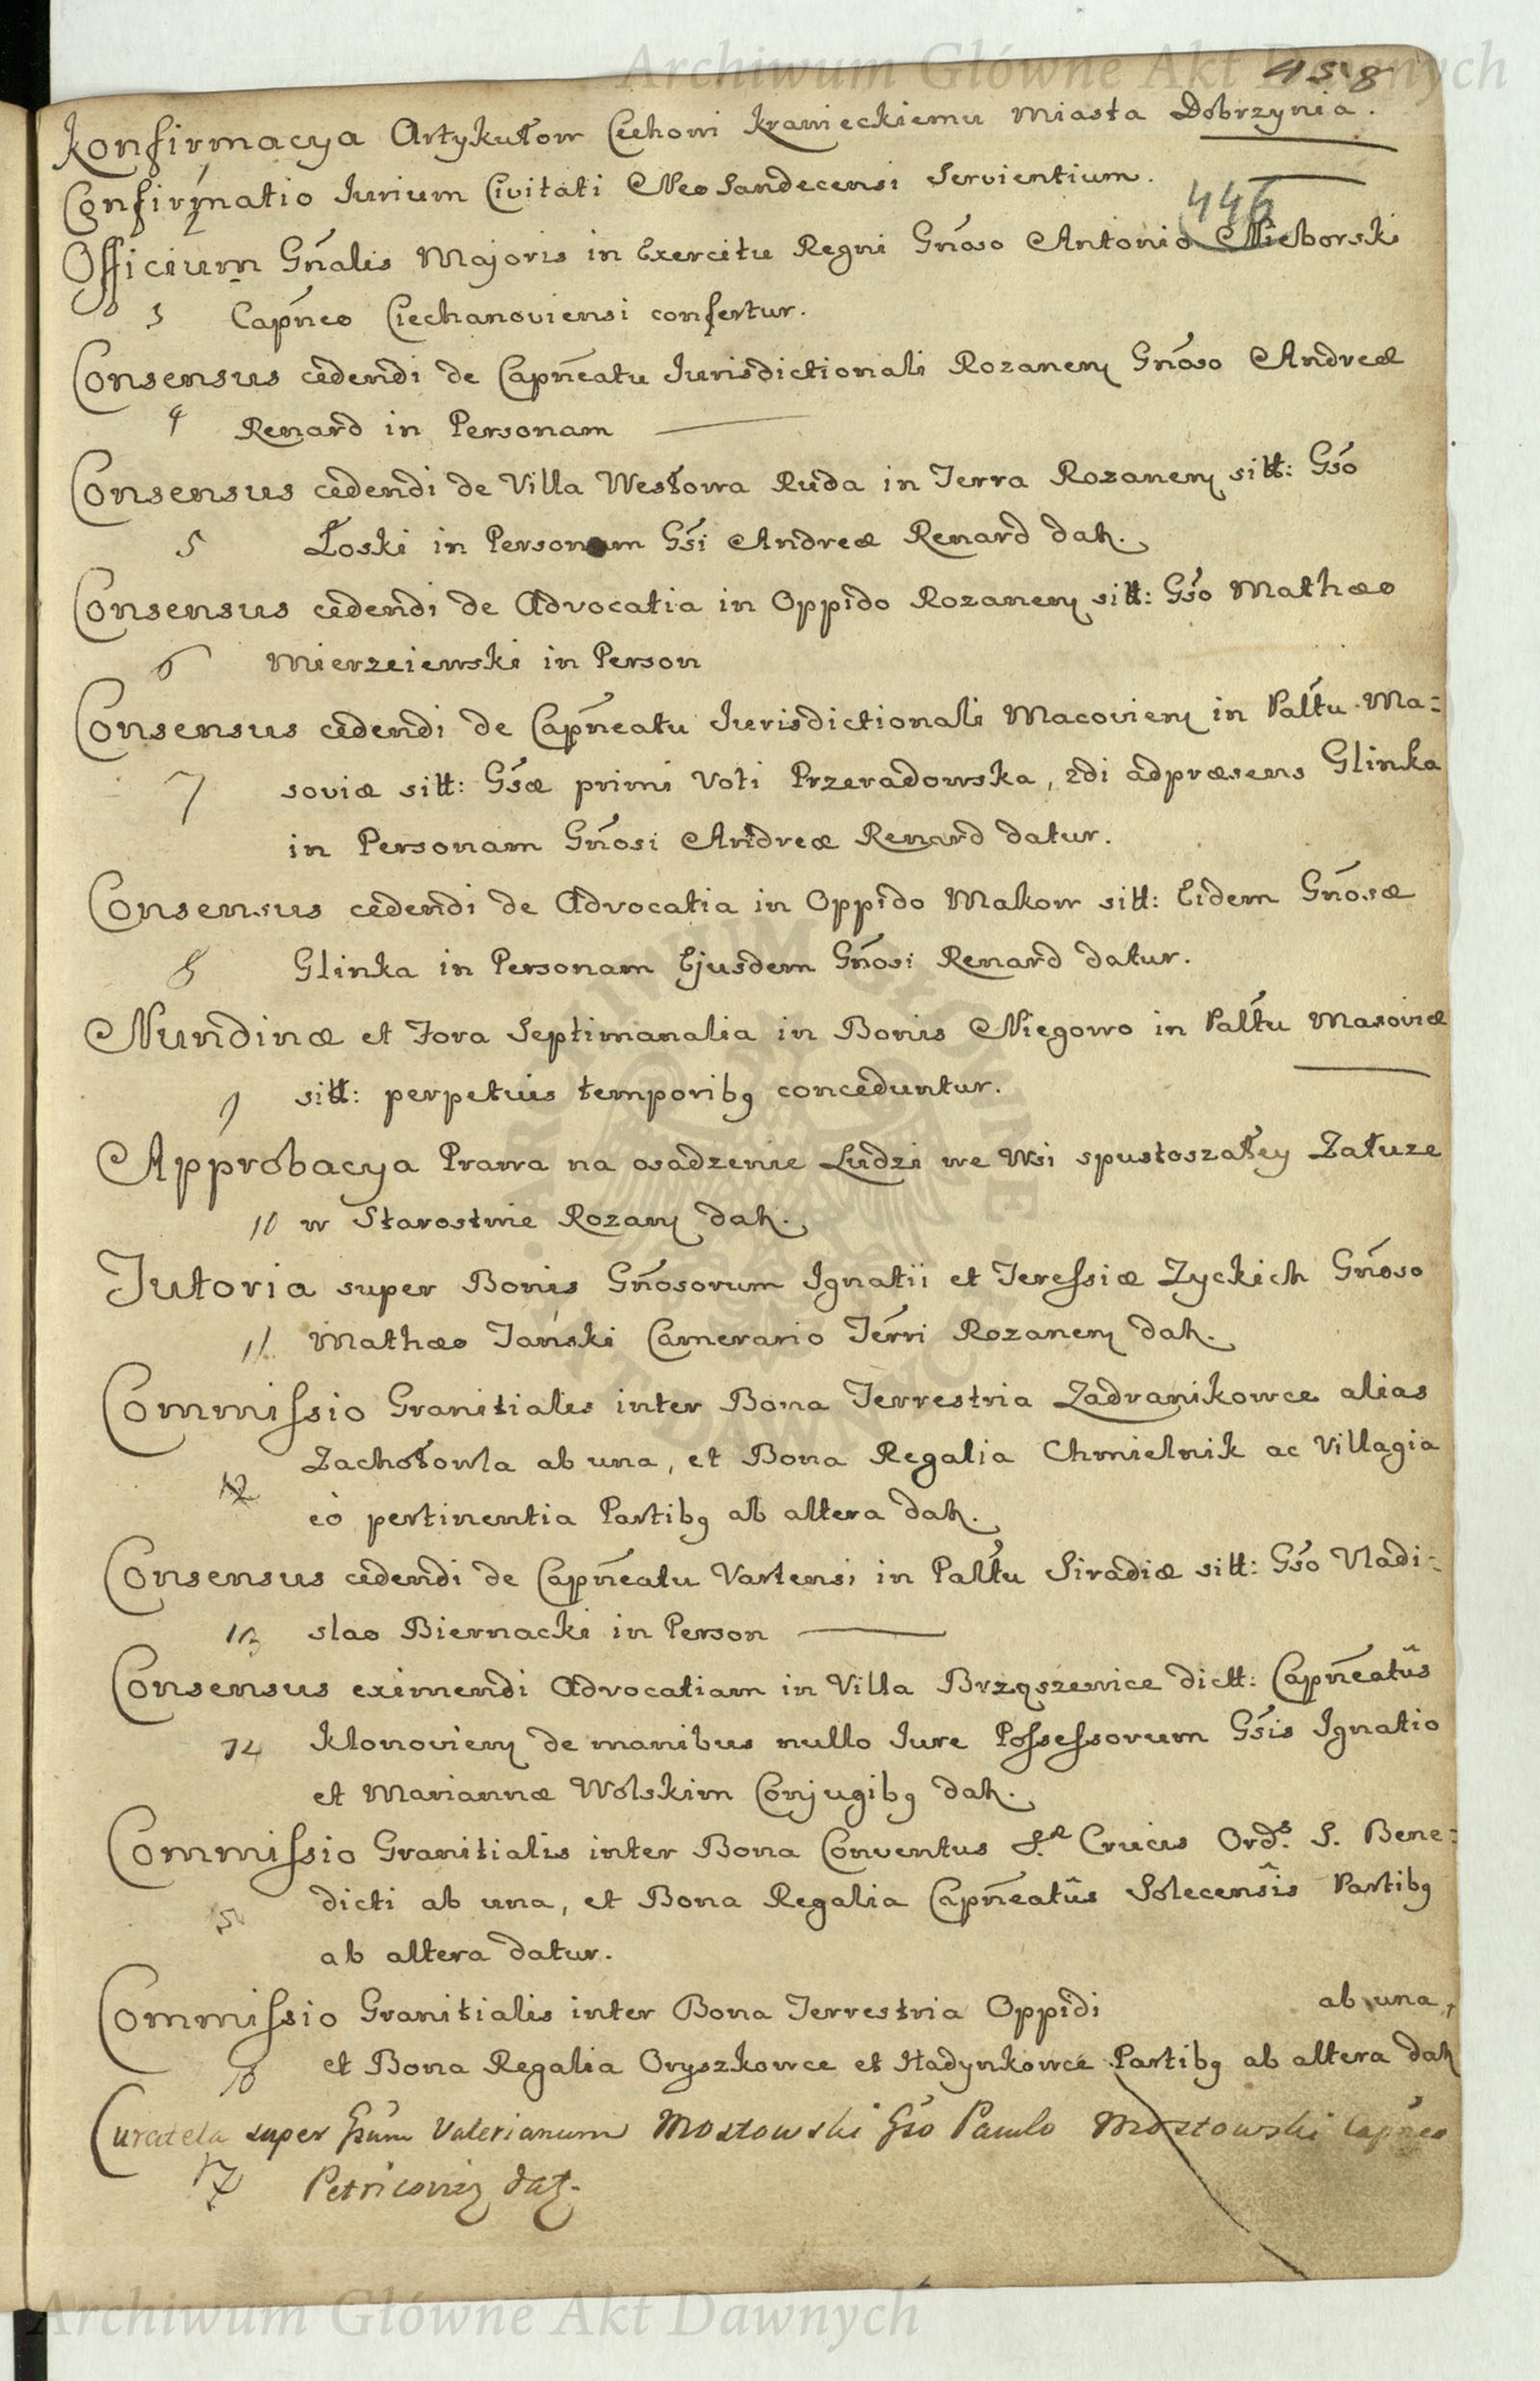 458
Konfirmacya Artykułow Cechowi Krawieckiemu Miasta Dobrzynia.
1
Confirmatio Jurium Civitati Neo Sandecensi Servientium.
446
2
Officium Gñalis Majoris in Exercitu Regni Gñoso Antonio Nieborski
3 Capñeo Ciechanoviensi confertur.
Consensus cedendi de Capñeatu Jurisdictionali Rozanen Gñoso Andreæ
4 Renard in Personam
Consensus cedendi de Villa Westowa Ruda in Terra Rozanen sitt: Gso
5 Łoski in Personam Gsi Andreæ Renard dat.
Consensus cedendi de Advocatia in Oppido Rozanen sitt: Gso Mathæo
6 Mierzeiewski in Person
Consensus cedendi de Capñeatu Jurisdictionali Macovien in Paltu Ma=
7 soviæ sitt: Gsæ primi Voti Przeradowska, 2di adpræsens Glinka
in Personam Gñosi Andreæ Renard datur.
Consensus cedendi de Advocatia in Oppido Makow sitt: Eidem Gñosæ
8 Glinka in Personam Ejusdem Gñosi Renard datur.
Nundinæ et Fora Septimanalia in Bonis Niegowo in Paltu Masoviæ
9 sitt: perpetuis temporibq conceduntur.
Approbacya Prawa na osadzenie Ludzi we Wsi spustoszałey Załuze
10 w Starostwie Rozan dat.
Tutoria super Bonis Gñosorum Ignatii et Teressiæ Zyckich Gñoso
11 Mathæo Jański Camerario Terri Rozanen dat.
Commissio Granitialis inter Bona Terrestria Zadranikowce alias
12 Zachołowla ab una, et Bona Regalia Chmielnik ac Villagia
eò pertinentia Partibq ab altera dat.
Consensus cedendi de Capñeatu Vartensi in Paltu Siradiæ sitt: Gso Vladi=
13 slao Biernacki in Person
Consensus eximendi Advocatiam in Villa Brząszewice dictt: Capñeatûs
14 Klonovien de manibus nullo Jure Possessorum Gsis Ignatio
et Mariannæ Wolskim Conjugibq dat.
Commissio Granitialis inter Bona Conventus S. Crucis Ords. S. Bene=
5 dicti ab una, et Bona Regalia Capñeatûs Solecensîs Partibq
ab altera datur.
Commissio Granitialis inter Bona Terrestria Oppidi ab una,
16 et Bona Regalia Oryszkowce et Hadynkowce Partibq ab altera dat
Curatela super Gsum Valerianum Mostowski Gso Paulo Mostowski Capñeo
17 Petricovien dat.
Archiwum Główne Akt Dawnych